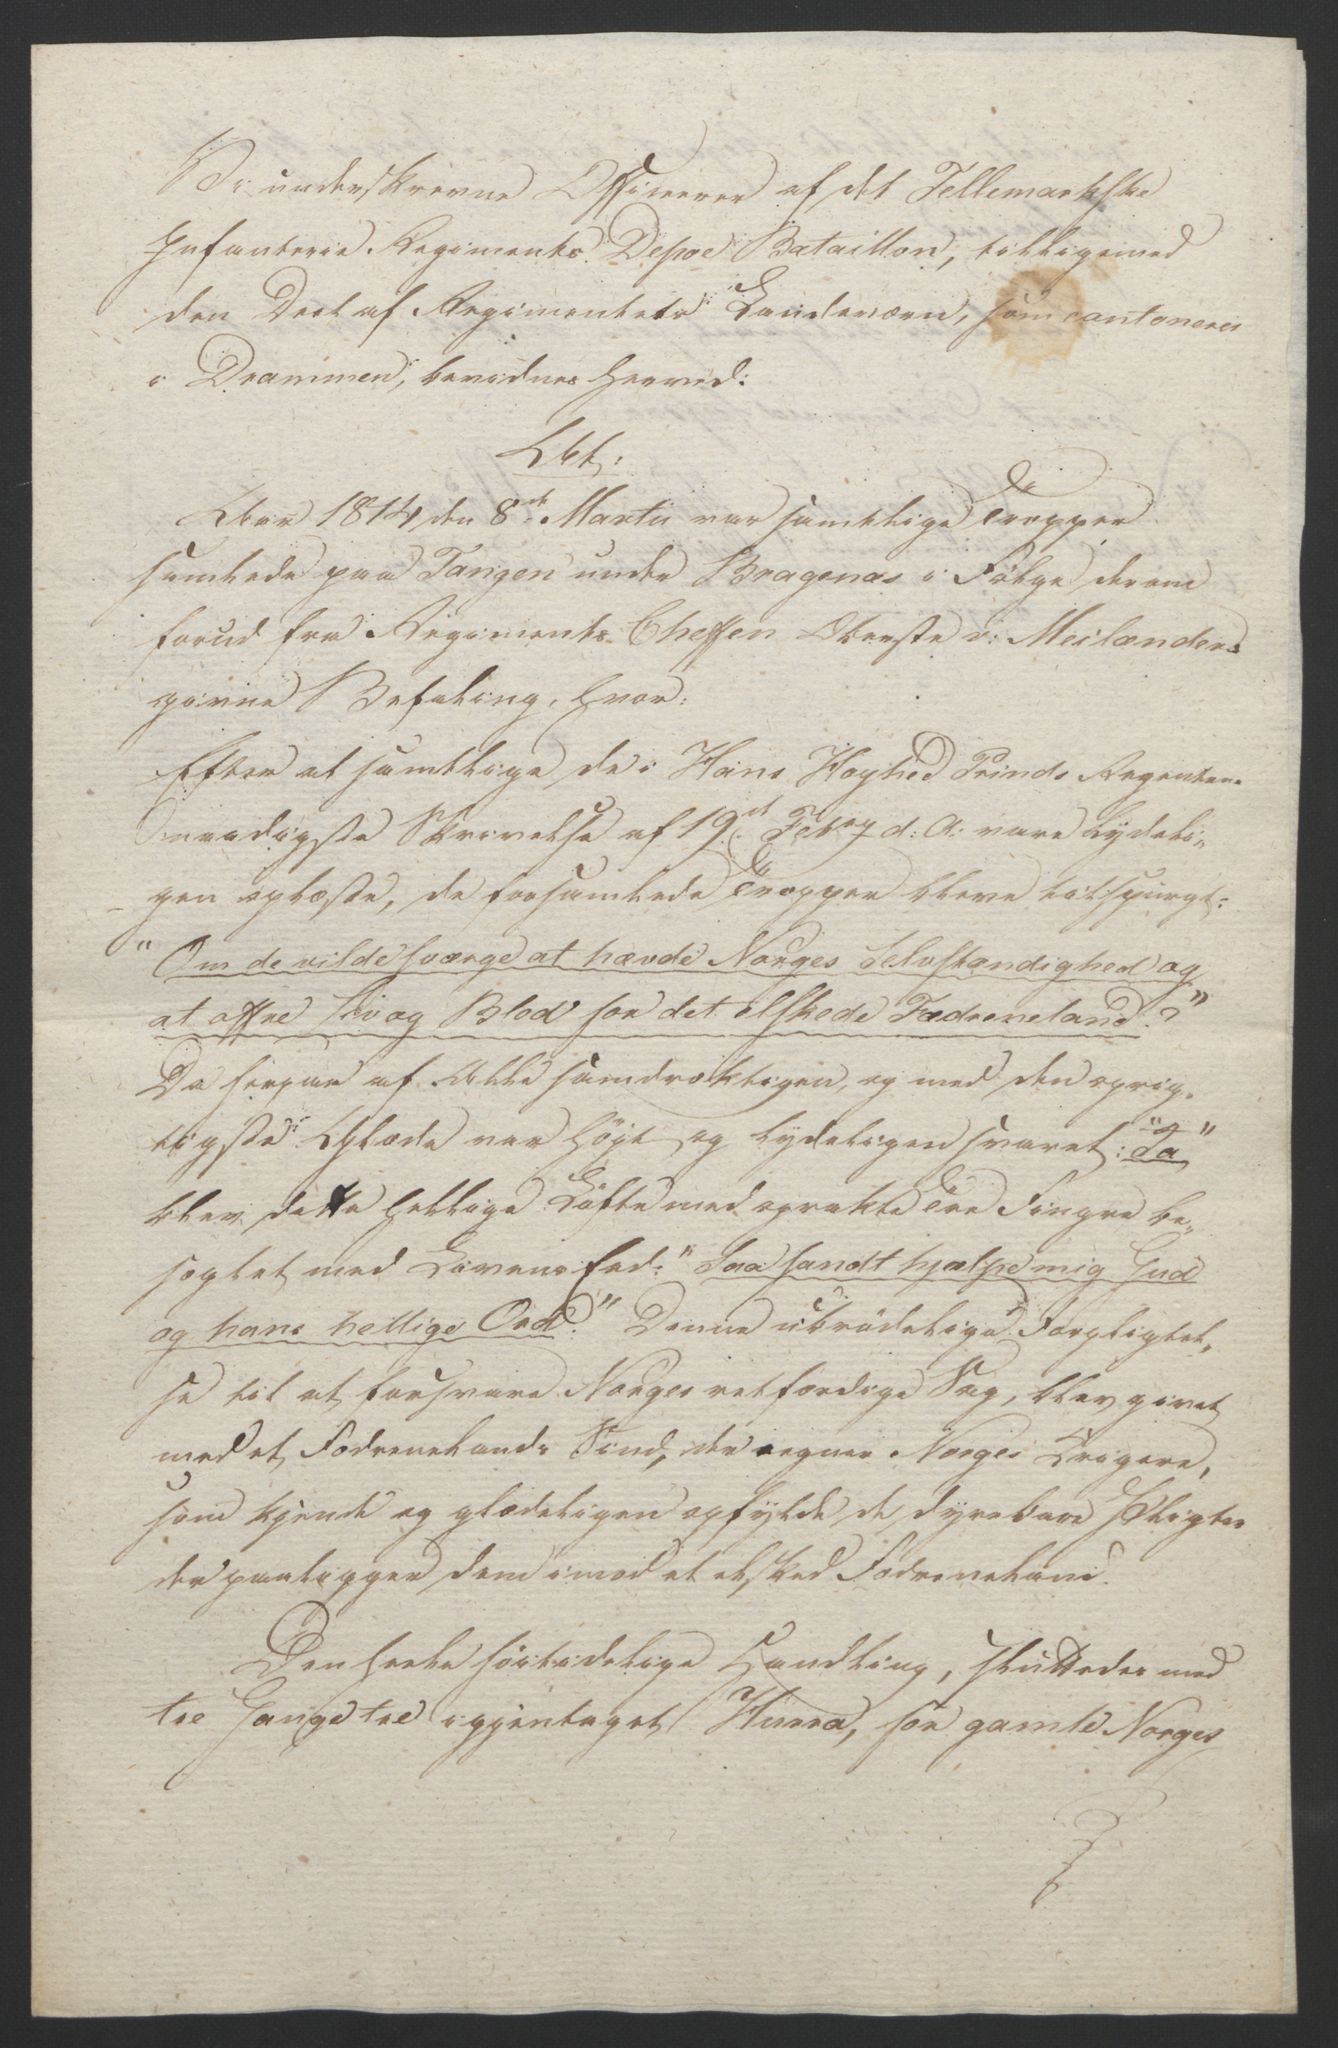 Vi underskrevne Officerer af det Tellemarkske
Infanterie Regiments Depoe Bataillon, tilligemed
den Deel af Regimentets Landeværn, som cantonerer
i Drammen, bevidner herved:
At:
Aar 1814 den 8de Martii var samtlige Tropper
samlede paa Tangen under Bragenæs i Følge derom
forud fra Regiments Cheffen Oberste v: Meilænders
givne Befaling, hvor:
Efter at samtlige de i Hans Høyhed Prinds Regentens
Naadigste Skrivelse af 19d Febry d: A: vare lydeli„
gen oplæste, de forsamlede Tropper bleve tilspurgt:
"Om de vilde sværge at hævde Norges Selvstændighed og
at offre Liv og Blod for det elskede Fædreneland?"
Da herpaa af Alle samdrægtigen, og med den oprig„
tigste Glæde var høyt og lydeligen svaret: "Ja"
blev dette hellige Løfte med oprakte Tre Fingre be„
seglet med Lovens Eed: "Saa sandt hjælpe mig Gud
og hans hellige Ord." Denne ubrødelige Forpligtel„
se til at forsvare Norges retfærdige Sag, blev givet
med et Fædrenelands Sind, der egner Norges Krigere,
som kjende og glædeligen opfylde de dyrebare Pligter
der paaligger dem imod et elsked Fædreneland.
Den heele høitidelige Handling, sluttedes med
tre Gange tre igjentaget Hurra, for gamle Norges